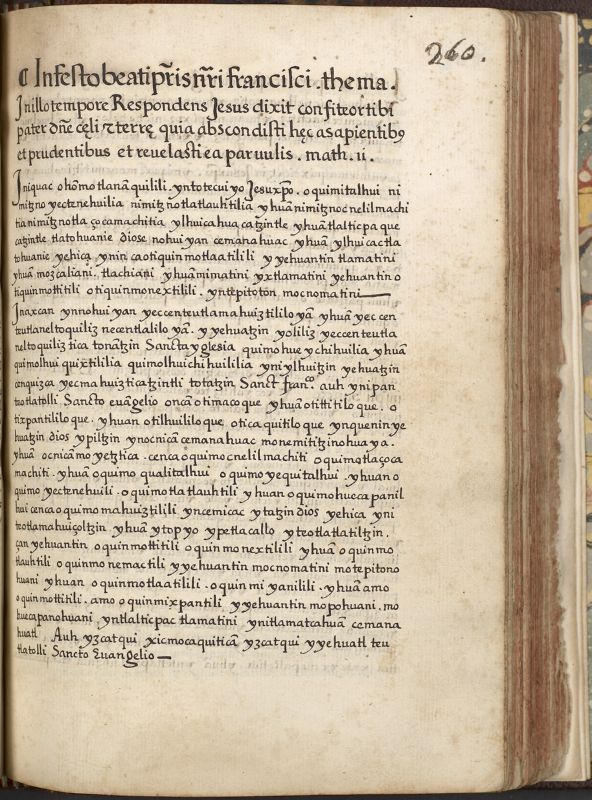 260.
¶ Infestobeatip̃ris nr̃i francisci . thema .
Jnillotempore Respondens Jesus dixit confiteortibi
pater dñe cęli ⁊ terrę quia abscondisti hęc asapientibꝯ
et prudentibus et reuelastiea paruulis . math . ii .
Jniquac ohõmotlanãquilili . yntotecuiyo Jesuxp̃o . oquimitalhui ni
mitzno yectenehuilia nimitznotlatlauhtilia yhuãnimitznocnelilmachi
tia nimitznotla çocamachitia ylhuicahua catzintle yhuãtlalticpa que
catzintle tlatohuanie diose nohuiyan cemanahuac yhuã ylhuicactla
tohuanie yehica ynin caotiquinmotlaatilili yyehuantin tlamatini
yhuã mozcaliani . tlachiani yhuãmimatini yxtlamatini yehuantin o
tiquinmottili otiquinmonextilili . yntepitoton mocnomatini—
Jnaxcan ynnohuiyan yeccenteutlamahuiztililoyã yhuã yeccen
teutlaneltoquiliz necentlalilo yã . yyehuatzin yoliliz yeccenteutla
neltoquiliztica tonãtzin Sanctayglesia quimohueychihuilia yhuã
quimolhuiquixtililia quimolhuichihuililia yniylhuitzin yehuatzin
cenquizca yecmahuizticatzintli totatzin Sanct franco auh ynipan
teotlatolli Sancto euãgelio oncã otimacoque yhuãotittitiloque . o
tixpantililoque . yhuan otilhuililoque oticaquitiloque ynquenin ye
huatzin dios ypiltzin ynocnicã cemanahuac monemititzinohuaya .
yhuã ocnicãmoyetztica . cencaoquimocnelilmachiti oquimotlaçoca
machiti . yhuã oquimo qualitalhui oquimo yequitalhui . yhuan o
quimo yectenehuili . oquimotlatlauhtili yhuan oquimohuecapanil
hui cenca oquimo mahuiztilili yncemicac ytatzin dios yehica yni
teotlamahuiçoltzin yhuã ytopyo ypetlacallo yteotlatlatiltzin .
çan yehuantin oquinmottitili oquinmonextilili yhuã oquinmo
tlauhtili oquinmo nemactili yyehuantin mocnomatini motepitono
huani yhuan oquinmotlaatilili . oquinmiyanilili . yhuã amo
oquinmottitili . amo oquinmixpantili yyehuantin mopohuani . mo
huecapanohuani yntlalticpac tlamatini ynitlamatcahuã cemana
huatl Auh yzcatqui xicmocaquiticã yzcatqui yyehuatl teu
tlatolli Sancto Euangelio—